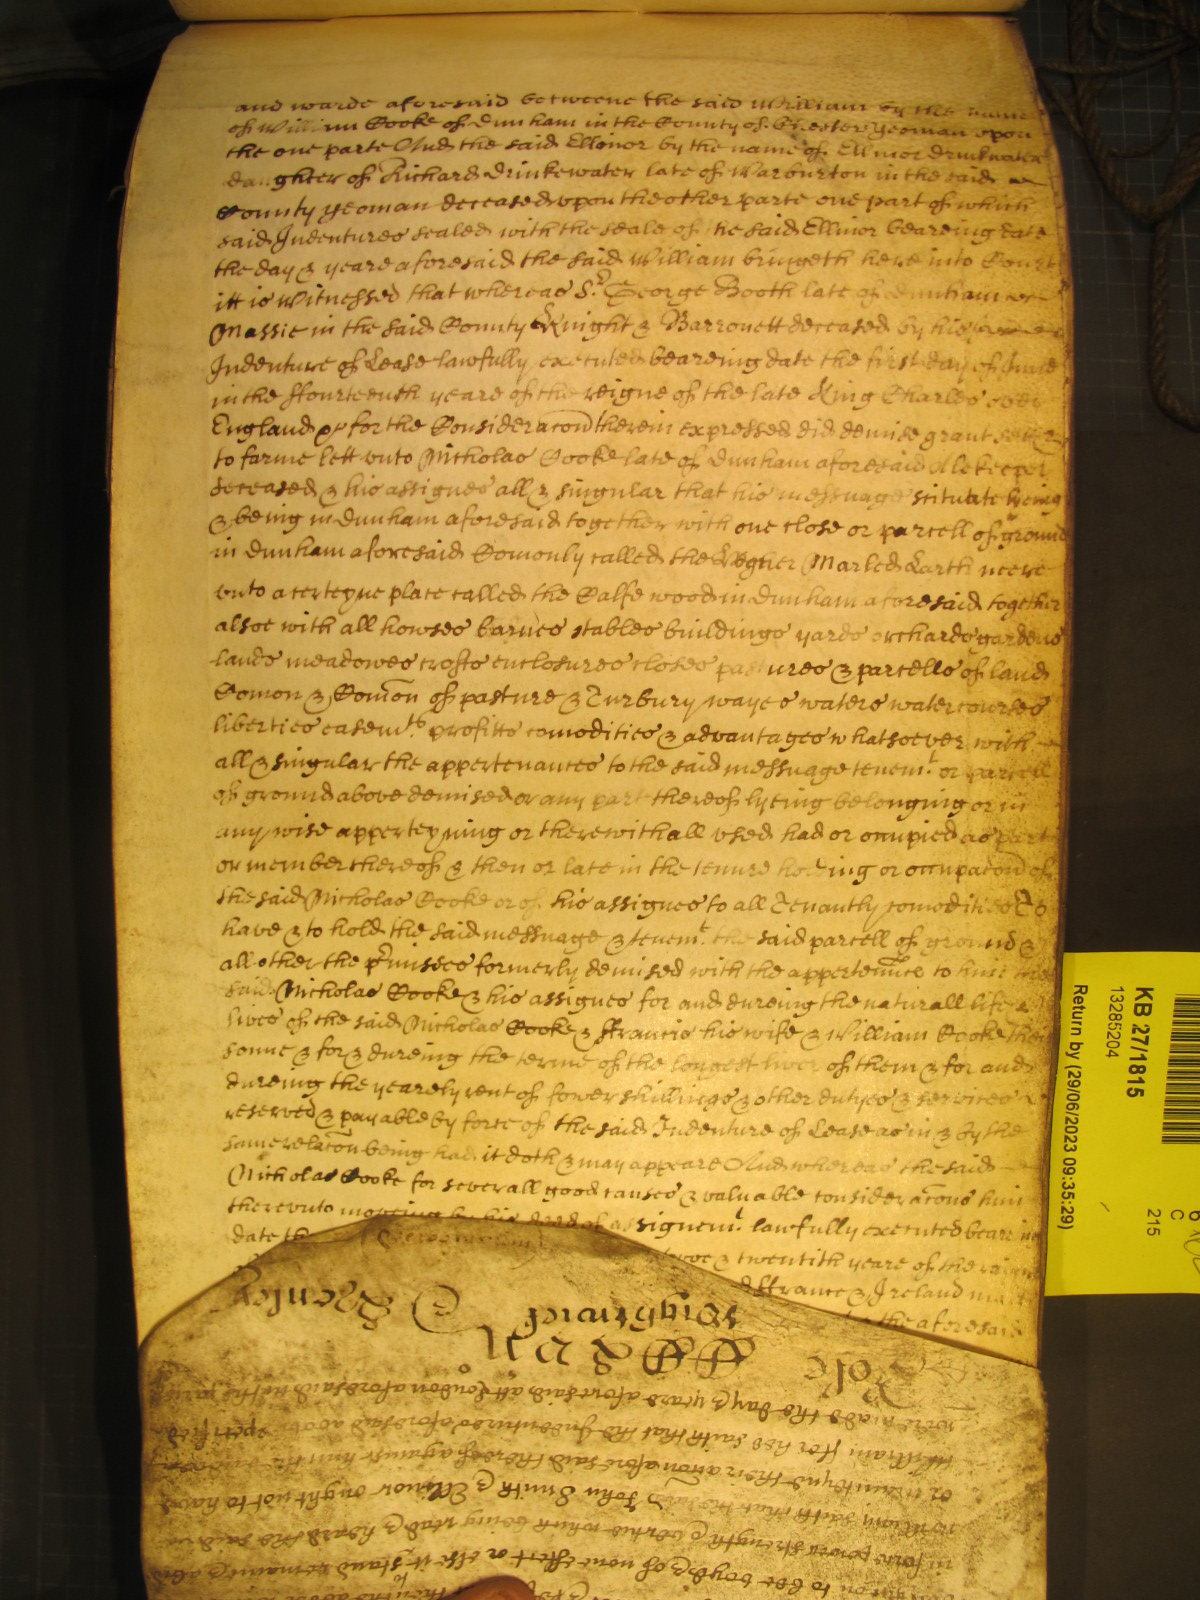 and warde aforesaid betweene the said William by the name
of William Cooke of Dunham in the County of Chester yeoman upon
the one parte And the said Ellinor by the name of Ellinor Drinkwater
daughter of Richard Drinkewater late of Warburton in the said
County yeoman deceased upon the other parte one part of which
said Indentures sealed with the seale of the said Ellinor beareing date
the day & yeare aforesaid the said William bringeth here into Court
itt is Witnessed that whereas Sr. George Booth late of Dunham
Massie in the said County Knight & Barronett deceased by his
Indenture of Lease lawfully executed beareing date the first day of June
in the ffourteenth yeare of the reigne of the late King Charles over
England &c for the Consideracon therein expressed did demise grant sett &
to farme lett unto Nicholas Cooke late of Dunham aforesaid Alekeeper
deceased & his assignes all & singular that his messuage scituate lyeing
& being in Dunham aforesaid together with one close or parcell of ground
in Dunham aforesaid Comonly called the Hegher Marled Earth neere
unto a certeyne place called the Calfe wood in Dunham aforesaid together
alsoe with all howses barnes stables buildings yards orchards gardens
lands meadowes crofts enclosures closes pastures & parcells of land
Comon & Comon of pasture & Turbury wayes waters watercourses
liberties easemts. profitts comodities & advantages whatsoever with
all & singular the appertenances to the said messuage tenemt. or parcell
of ground above demised or any part thereof lyeing belonging or in
any wise apperteyning or therewithall used had or occupied as part
or member thereof & then or late in the tenure holding or occupacon of
the said Nicholas Cooke or of his assignes to all Tenantly comodities To
have & to hold the said messuage & tenemt. the said parcell of ground &
all other the prmisses formerly demised with the appertennces to him the
said Nicholas Cooke & his assignes for and dureing the naturall life &
lives of the said Nicholas Cooke & ffrancis his wife & William Cooke their
sonne & for & dureing the terme of the longest liver of them & for and
dureing the yearely rent of fower shillings & other dutyes & services
reserved & payable by force of the said Indenture of Lease as in & by the
same relacon being had it doth & may appeare And whereas the said
Nicholas Cooke for severall good causes & valuable consideracons him
thereunto moveing by his deed of assignemt. lawfully executed beareing
date the
& twentith yeare of the raigne
ffrance & Ireland
the aforesaid
KB 27/1815
13285204
Return by (29/06/2023 09:35:29)
215
C
6
Henley
Wightwick
Role
were made the day & yeare aforesaid att London aforesaid
William ffor hee saith that the Indentures aforesaid above specified
or mainteyne their accion aforesaid thereof against him the
William saith that the said John Smith & Ellinor ought not to have
in force power strength & vertue which being read & heard the said
to bee voyd & of none effect or else it stand remaine & abide